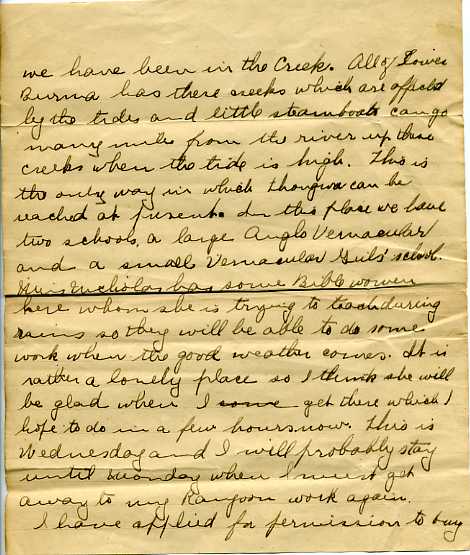 we have been in the Creek. All of Lower
Burma has these creeks which are affected
by the tides and little steamboats can go
many miles from the river up these
creeks when the tide is high. This is
the only way in which Thongwa can be
reached at present. In this place we have
two schools, a large Anglo Vernacular
and a small Vernacular Girls' school.
Miss Nicholas has some Bible women
here whom she is trying to teach during
rains so they will be able to do some
work when the good weather comes. It is
rather a lonely place so I think she will
be glad when I come get there which I
hope to do in a few hours now. This is
Wednesday and I will probably stay
until Monday when I must get
away to my Rangoon work again.
I have applied for permission to buy